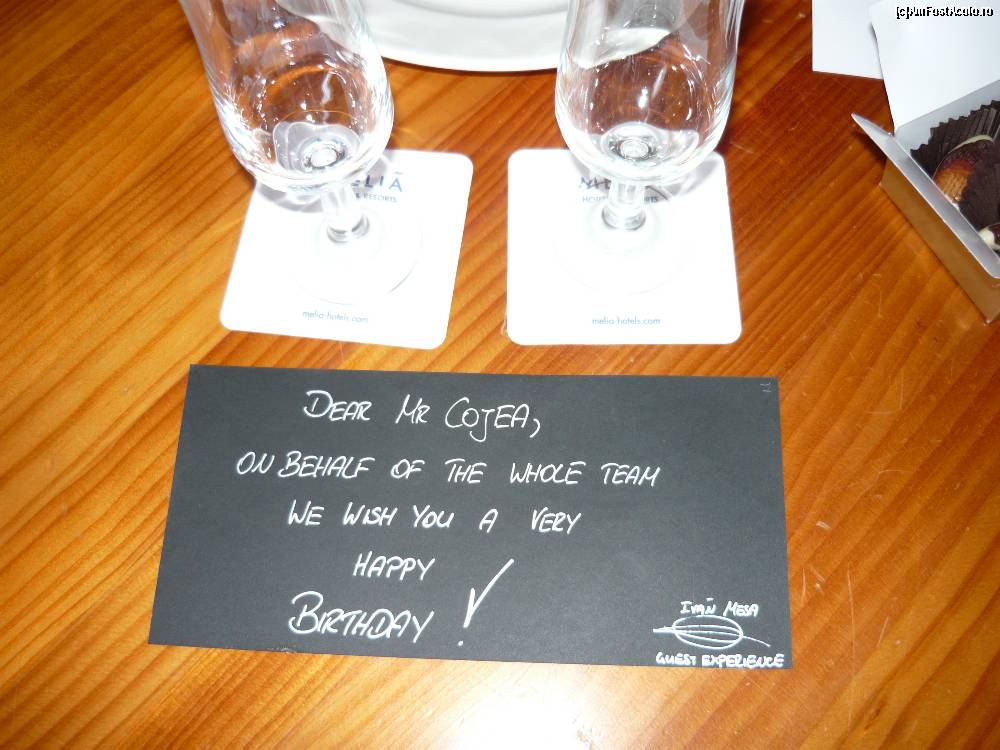 [c]AmFostAcolo.ro
RESORTS
melia-hotels.com
melia-hotels.com
DEAR MR COJEA,
ON BEHALF OF THE WHOLE TEAM
WE WISH YOU A VERY
HAPPY
BIRTHDAY!
IVAN MESA
GUEST EXPERIENCE